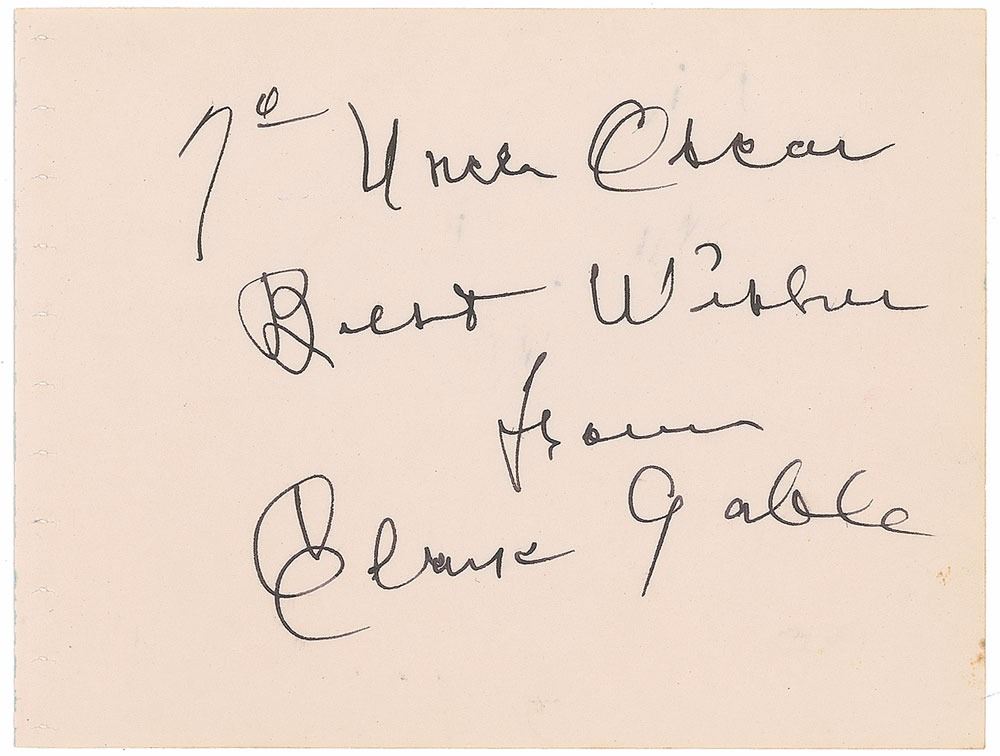 To Uncle Oscar
Best Wishes
from
Clark Gable